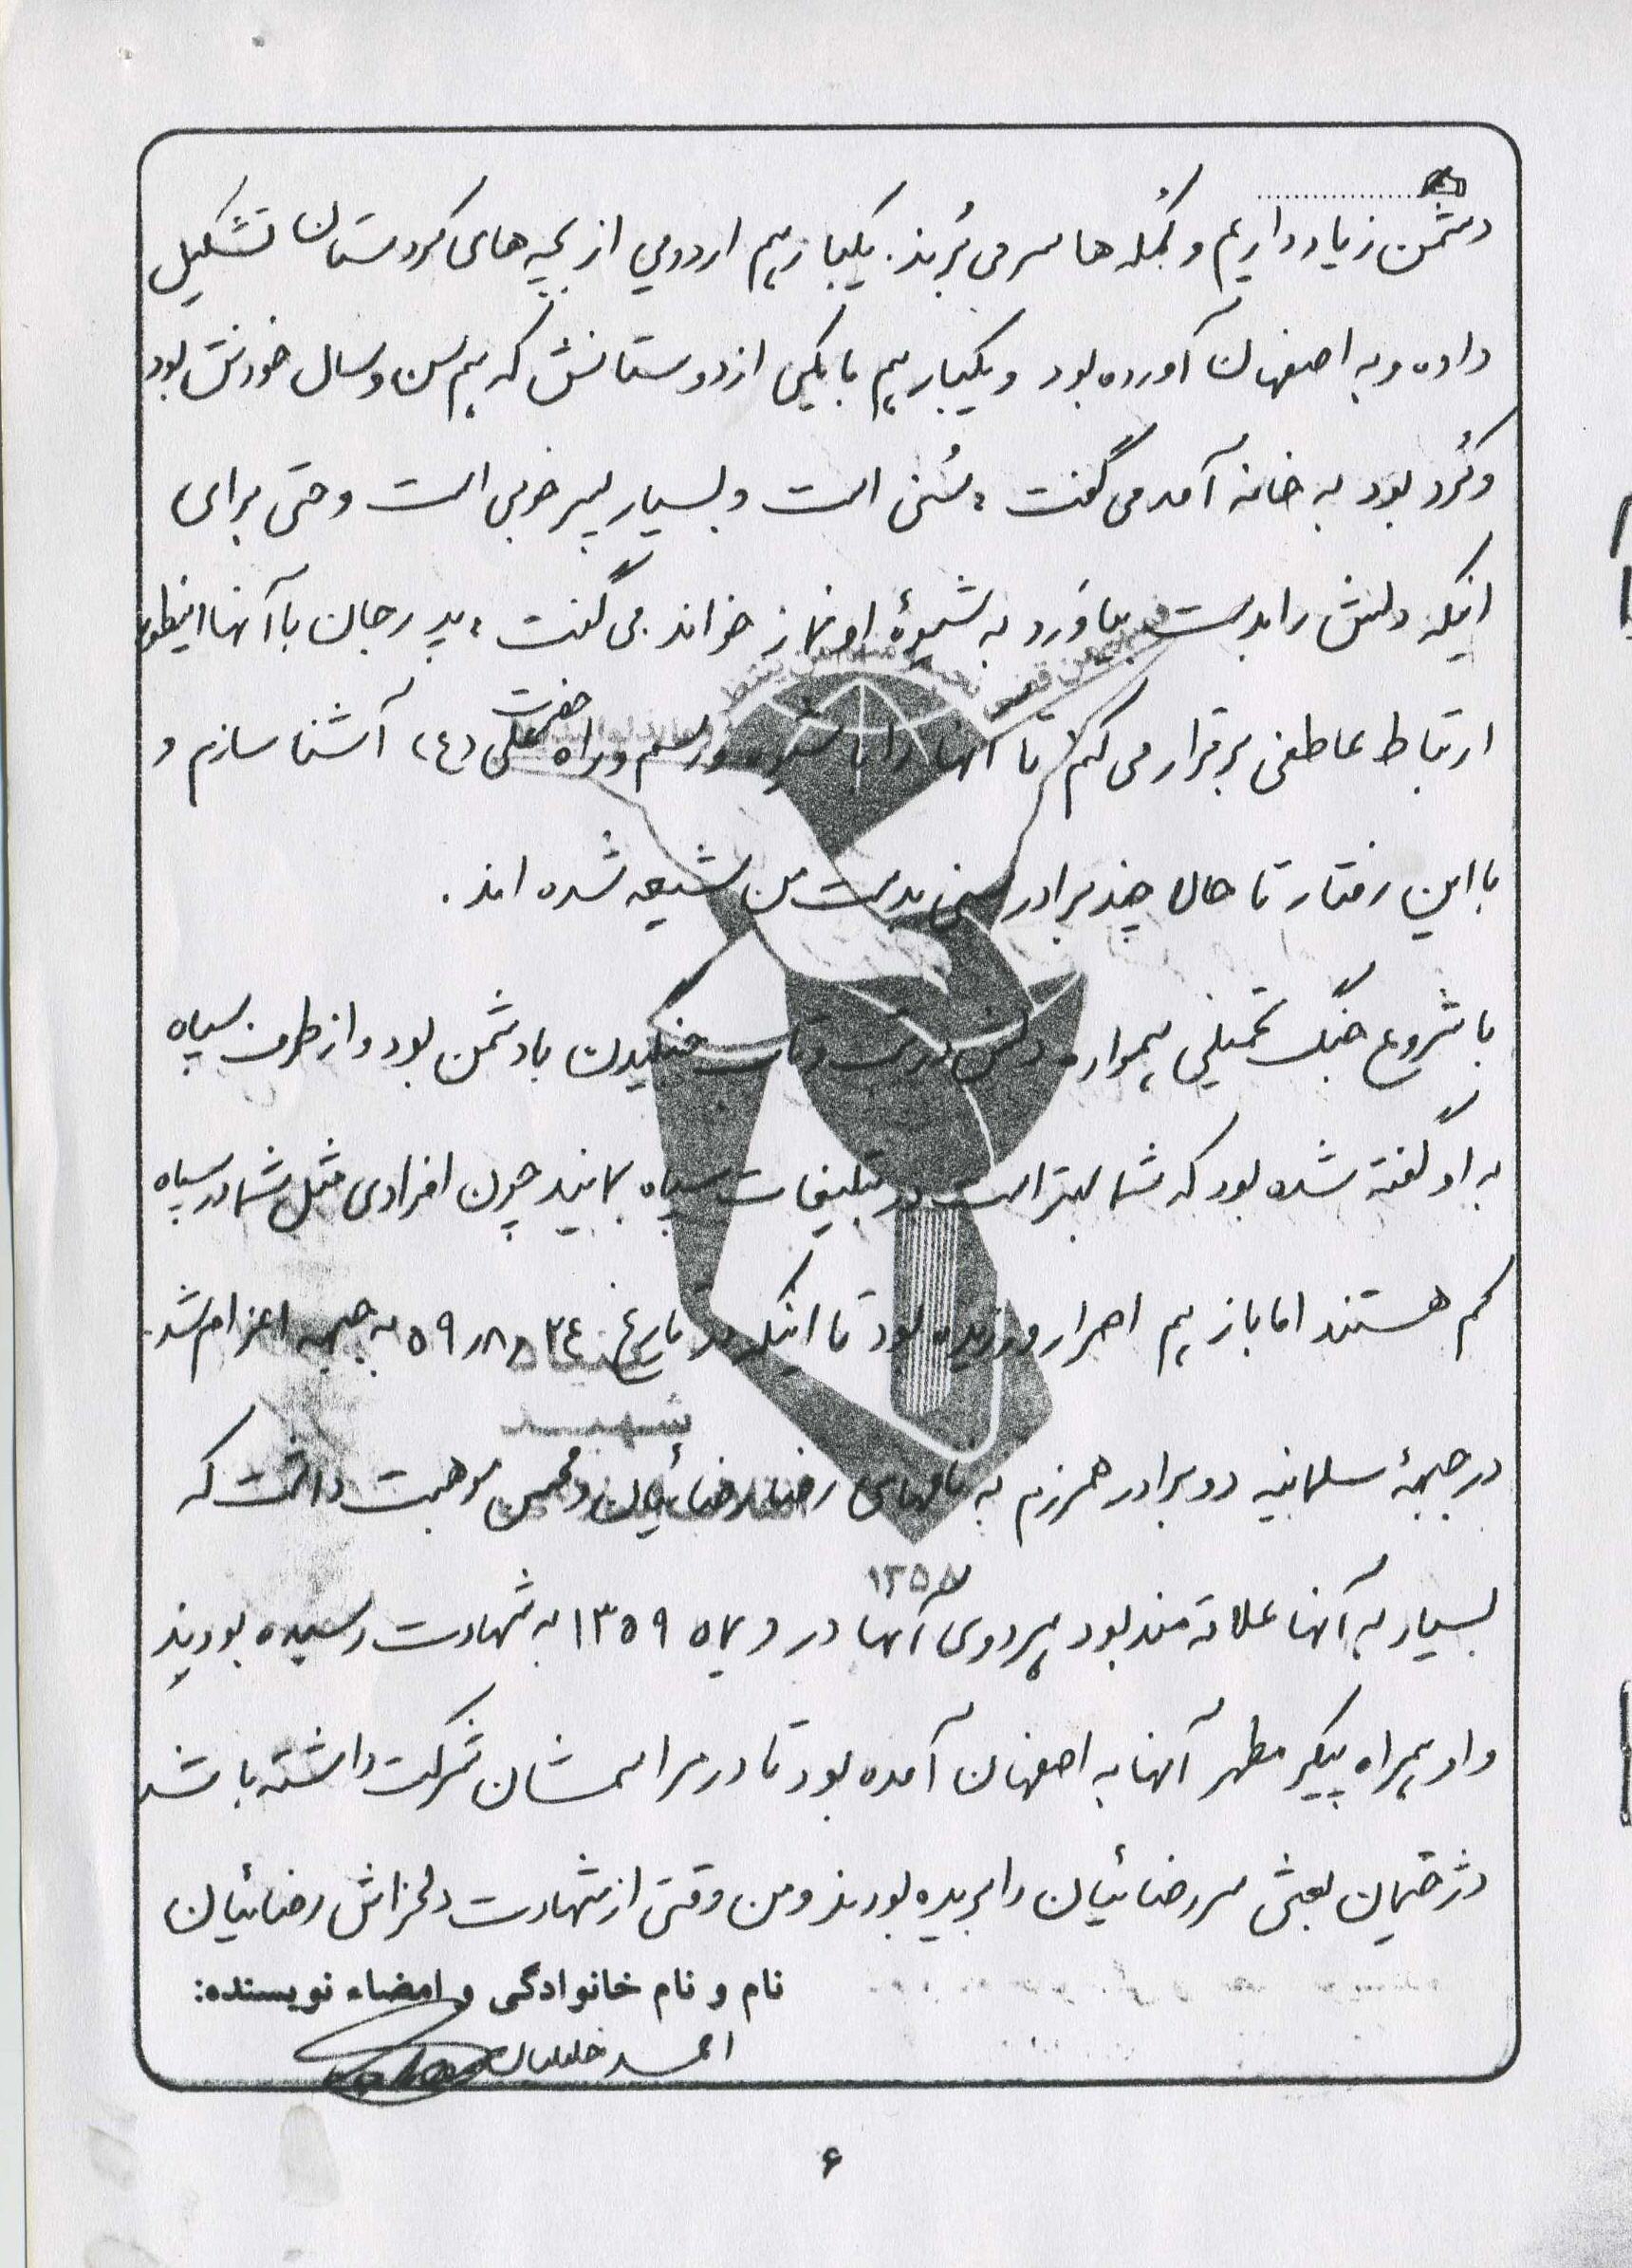 دشمن زیاد داریم و کُمُله ها سر می بُرند. یکبار هم اردویی از بچه های کردستان تشکیل
داده و به اصفهان آورده بود و یکبار هم با یکی از دوستانش که هم سن و سال خودش بود
و کُرد بود به خانه آمد می گفت: سُنی است و بسیار پسر خوبی است و حتی برای
اینکه دلش را بدست بیاورد به شیوهٔ او نماز خواند می گفت: پدر جان با آنها اینطور
ارتباط عاطفی برقرار می کنم تا آنها را با شیوه و رسم و راه حضرت علی (ع) آشنا سازم و
با این رفتار تا حالا چند برادر سنی بدست من شیعه شده اند.
با شروع جنگ تحمیلی همواره دلش در تب و تاب جنگیدن با دشمن بود و از طرف سپاه
به او گفته شده بود که شما بهتر است در تبلیغات سپاه بمانید چون افرادی مثل شما در سپاه
کم هستند اما باز هم اصرار ورزیده بود تا اینکه در تاریخ ۲۴ر۸ر۵۹ به جبهه اعزام شد.
شهید
در جبههٔ سلمانیه دو برادر همرزم به نامهای رضا رضائیان و محسن موهبت داشت که
۱۳۵۸
بسیار به آنها علاقه مند بود هر دوی آنها در دیماه ۱۳۵۹ به شهادت رسیده بودند
و او همراه پیکر مطهر آنها به اصفهان آمده بود تا در مراسمشان شرکت داشته باشد
دژخیمان بعثی سر رضائیان را بریده بودند و من وقتی از شهادت دلخراش رضائیان
نام و نام خانوادگی و امضاء نویسنده:
احمد خلیلیان
۶